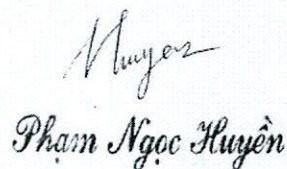 Huyen
Phạm Ngọc Huyền